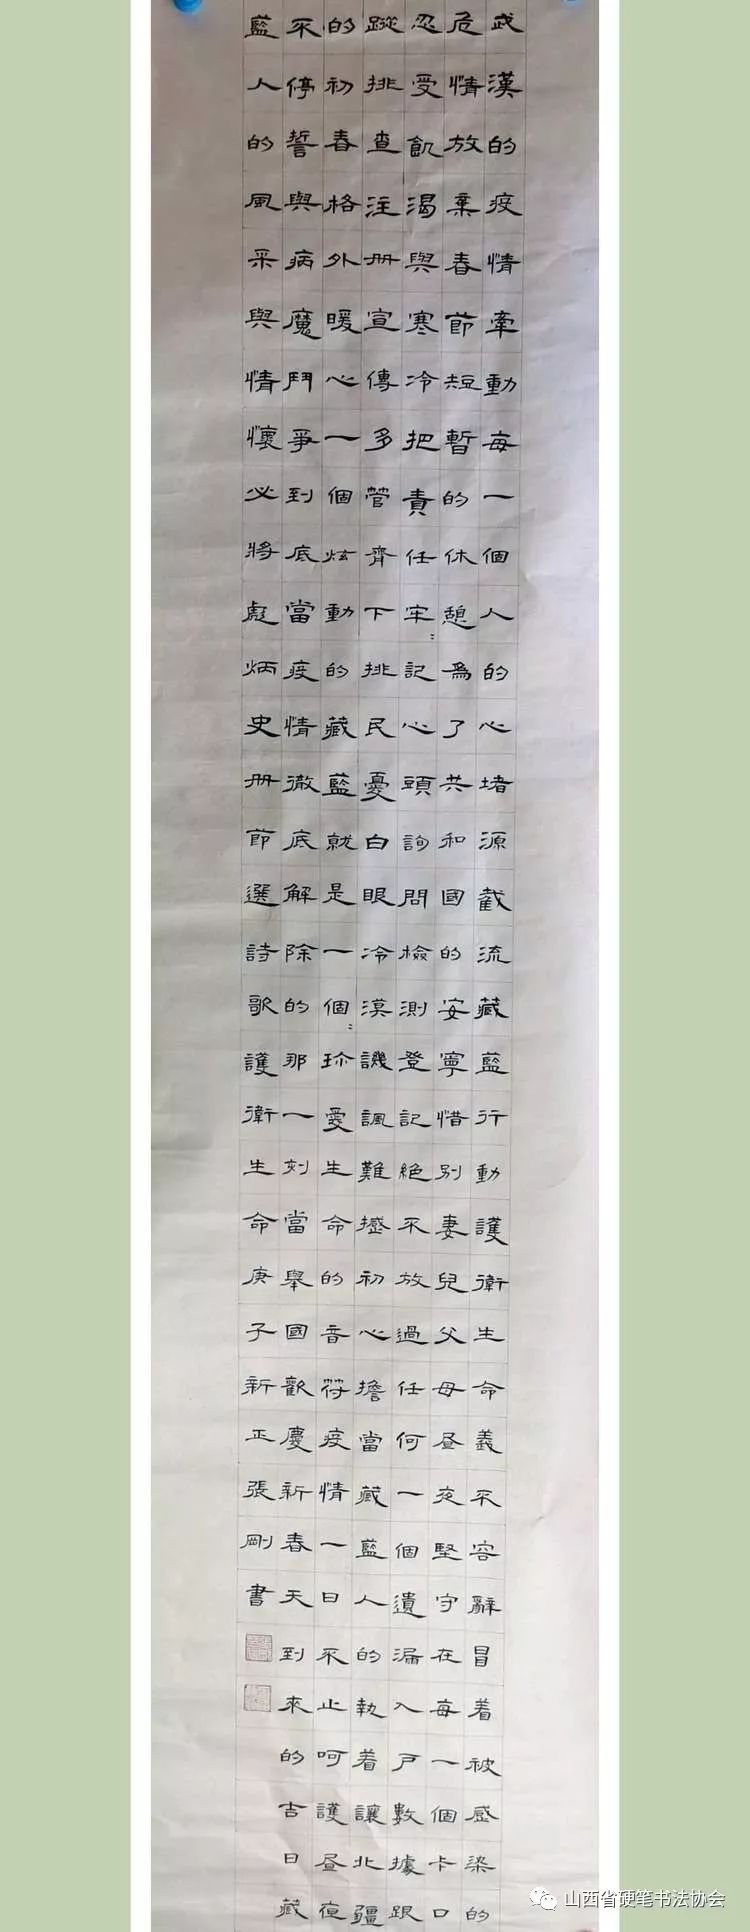 武漢的疫情牽動每一個人的心堵源截流藏藍行動護衛生命義不容辭冒着被感染的
危情放棄春節短暫的休憩爲了共和國的安寧惜別妻兒父母晝夜堅守在每一個卡口
忍受飢渴與寒冷把責任牢〻記心頭詢問檢測登記絕不放過任何一個遺漏入戶數據跟
蹤排查注册宣傳多管齊下排民憂白眼冷漠譏諷難撼初心擔當藏藍人的執着讓北疆
的初春格外暖心一個炫動的藏藍就是一個〻珍愛生命的音符疫情一日不止呵護晝夜
不停誓與病魔鬥爭到底當疫情徹底解除的那一刻當舉國歡慶新春天到來的吉日藏
藍人的風采與情懷必將彪炳史册節選詩歌護衛生命庚子新正張剛書
山西省硬笔书法协会